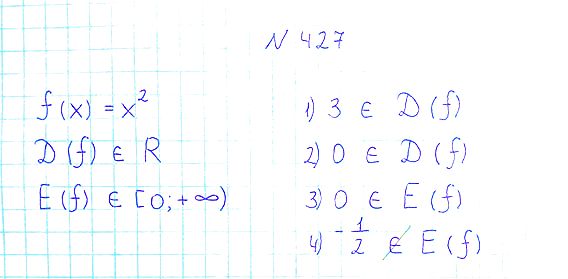 N 427
f(x) = x²
D(f) ∈ R
E(f) ∈ [0;+∞)
1) 3 ∈ D(f)
2) 0 ∈ D(f)
3) 0 ∈ E(f)
4) -1/2 ∉ E(f)